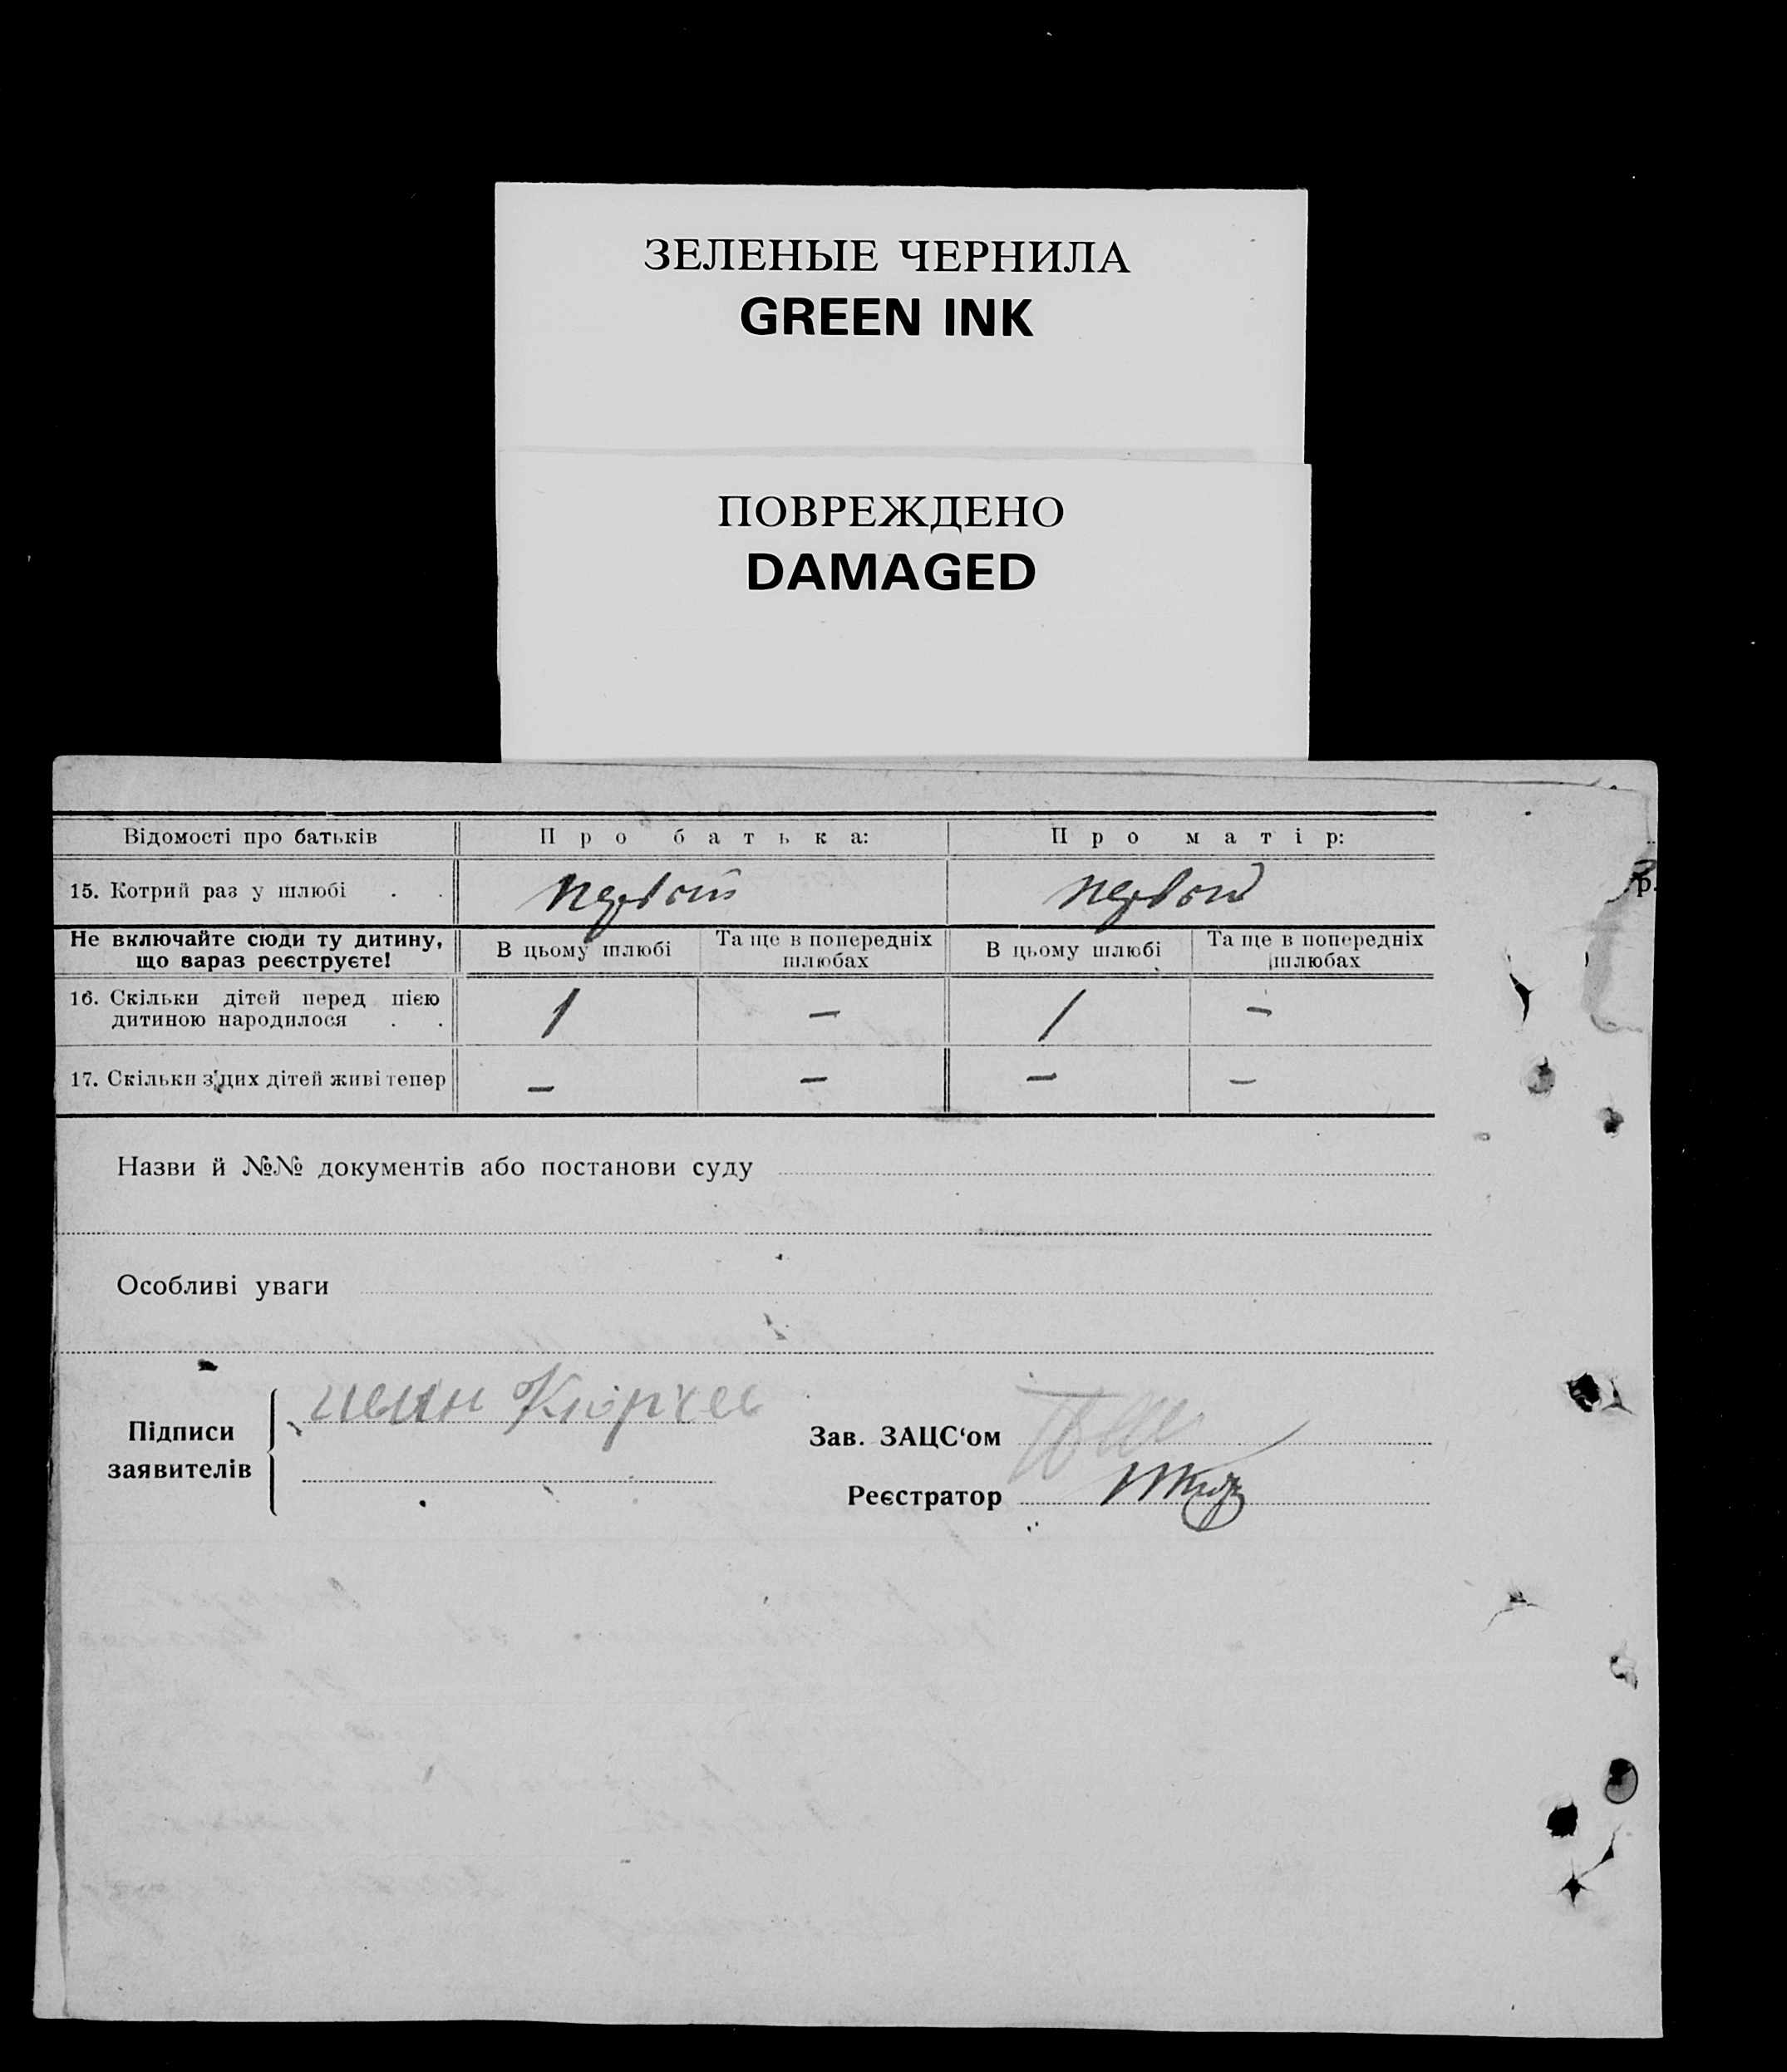 ЗЕЛЕНЫЕ ЧЕРНИЛА
GREEN INK
ПОВРЕЖДЕНО
DAMAGED
Відомості про батьків Про батька: Про матір:
р.
15. Котрий раз у шлюбі . . первый первый
Не включайте сюди ту дитину, що вараз реєструєте! В цьому шлюбі Та ще в попередніх шлюбах В цьому шлюбі Та ще в попередніх шлюбах
16. Скільки дітей перед цією дитиною народилося . . 1 — 1 —
17. Скільки з цих дітей живі тепер — — — —
Назви й №№ документів або постанови суду
Особливі уваги
Підписи заявителів
Зав. ЗАЦС‘ом
Реєстратор